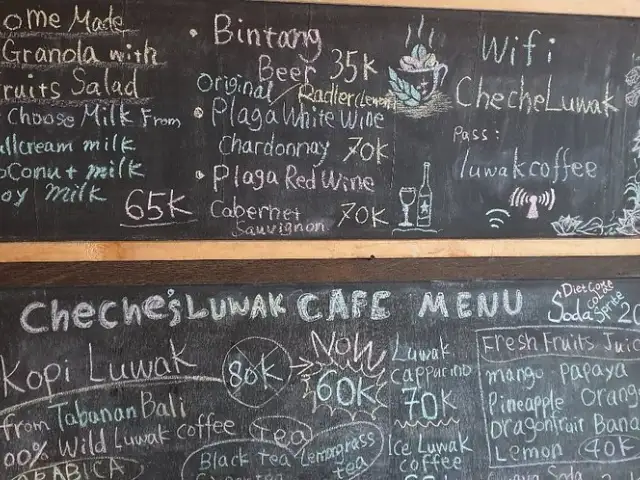 ome Made
Granola with
ruits Salad
choose Milk From
llcream milk
oconut milk
oy milk
65K
• Bintang
Beer 35K
Original / Radler (Lemon)
• Plaga White Wine
Chardonnay 70K
• Plaga Red Wine
Cabernet
Sauvignon 70K
Wifi
ChecheLuwak
Pass:
luwakcoffee
Cheche's LUWAK CAFE MENU
Diet Coke
Cola
Soda Sprite 20
Kopi Luwak
80K
NOW
60K
from Tabanan Bali
00% Wild Luwak coffee
ARABICA
Tea
Black tea Lemongrass
tea
Luwak
cappucino
70K
Ice Luwak
coffee
Fresh Fruits Juic
mango papaya
Pineapple Orang
Dragonfruit Bana
Lemon 40K
Soda